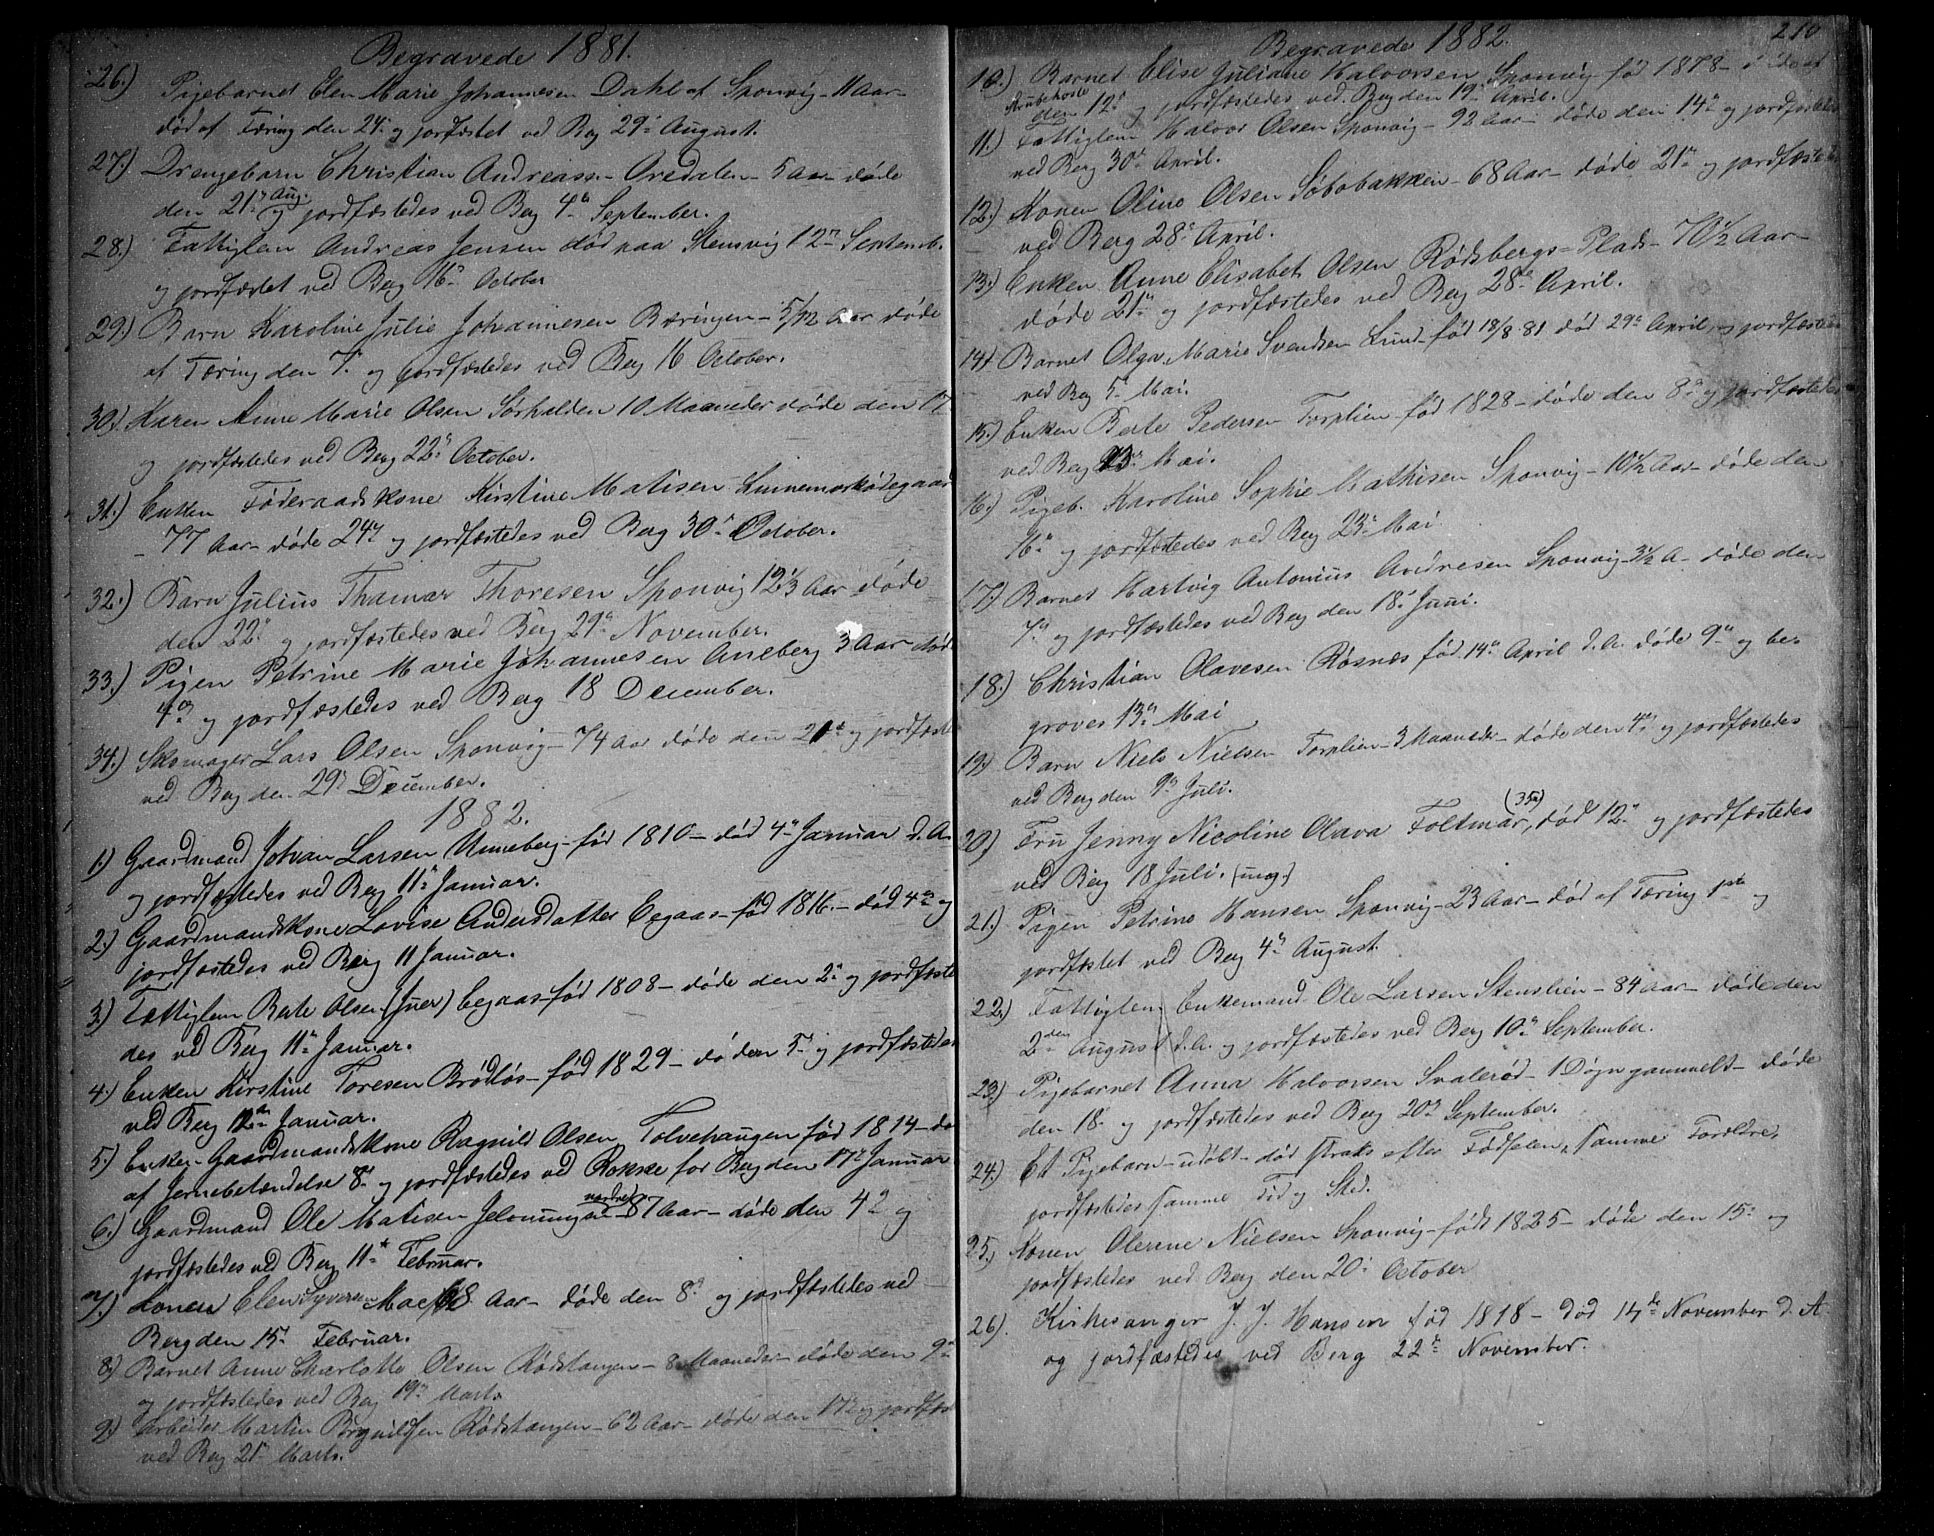 Begravede 1881.
26.) Pigebarnet Elen Marie Johannesen Dahl af Sponvig - 11 Aar -
død af Tæring den 24de og jordfæstet ved Berg 29de August.
27.) Drengebarn Christian Andreassen Oredalen - 5 Aar - døde
den 21de Aug. og jordfæstedes ved Berg 4de September.
28.) Fattiglem Andreas Jensen død paa Stensvig 12te Septemb.
og jordfæstet ved Berg 16de October
29.) Barn Karoline Julie Johannesen Bæringen - 5/12 Aar døde
af Tæring den 7de og jordfæstedes ved Berg 16 October.
30.) Karen Anne Marie Olsen Sørhalden 10 Maaneder døde den 17
og jordfæstedes ved Berg 22de October.
31.) Enken Føderaadskone Kirstine Matisen
- 77 Aar - døde 24de og jordfæstedes ved Berg 30te October.
32.) Barn Julius Thamar Thoresen Sponvig 12 1/3 Aar døde
den 22de og jordfæstedes ved Berg 29de November.
33.) Pigen Petrine Marie Johannesen Aneberg 3 Aar døde
4de og jordfæstedes ved Berg 18 December.
34.) Skomager Lars Olsen Sponvig - 74 Aar døde den 21de og jordfæste
ved Berg den 29de December.
1882.
1.) Gaardmand Johan Larsen Unneberg - født 1810 - død 4de Januar d. A.
og jordfæstedes ved Berg 11te Januar.
2.) Gaardmandskone Lovise Andersdatter Eegaas - fød 1816 - død 4de og
jordfæstedes ved Berg 11 Januar.
3.) Fattiglem Berte Olsen (Juer) Eegaas - fød 1808 - døde den 2de og jordfæste
des ved Berg 11te Januar.
4.) Enken Kirstine Toresen Brødløs - fød 1829 - dø den 5te og jordfæstedes
ved Berg 12te Januar.
5.) Enken Gaardmandskone Ragnild Olsen Tolvehaugen fød 1814 - dø
af Jernebetændelse 8de og jordfæstedes ved Rokke for Berg den 17de Januar
6.) Gaardmand Ole Matisen nordre - 87 Aar - døde den 4de og
jordfæstedes ved Berg 11te Februar.
7.) Konen Elen Syversen 68 Aar - døde den 8de og jordfæstedes ved
Berg den 15de Februar.
8.) Barnet Anne Charlotte Olsen Rødstangen - 8 Maaneder - døde den 9de
og jordfæstedes ved Berg 19de Marts
9.) Arbeider Martin Rødstangen - 62 Aar - døde den 17de og jordfæs
ved Berg 21de Marts.
210
Begravede 1882.
10.) Barnet Elise Juliane Halvorsen Sponvig - fød 1878 -
Strubehoste den 12te og jordfæstedes ved Berg den 19de April.
11.) Fattiglem Halvor Olsen Sponvig - 92 Aar - døde den 14de og jordfæstedes
ved Berg 30te April.
12.) Konen Oline Olsen Søbobakken - 68 Aar - døde 21de og jordfæstedes
ved Berg 28de April.
13.) Enken Anne Elisabet Olsen Rødsbergs-Plads - 70 1/2 Aar -
døde 21de og jordfæstedes ved Berg 28de April.
14) Barnet Olga Marie Svendsen Lund - fød 18/8 81 død 29de April, og jordfæstedes
ved Berg 5te Mai.
15.) Enken Berte Pedersen Torplien - fød 1828 - døde den 8de og jordfæstedes
ved Berg 13de Mai.
16.) Pigeb. Karoline Sophie Mathisen Sponvig - 10 1/2 Aar - døde den
16de og jordfæstedes ved Berg 23de Mai
17.) Barnet Hartvig Antonius Andresen Sponvig - 3 1/2 A - døde den
7de og jordfæstedes ved Berg den 18de Juni.
18.) Christian Olavesen Røsnæs fød 14de April d. A. døde 9de og be-
groves 13de Mai
19.) Barn Niels Nielsen Torplien - 3 Maaneder - døde den 4de og jordfæstedes
ved Berg den 9de Juli.
20.) Fru Jenny Nicoline Olava Foltmar, (35a) død 12te og jordfæstedes
ved Berg 18 Juli. (ung.)
21.) Pigen Petrine Hansen Sponvig - 23 Aar - død af Tæring 1ste og
jordfæstet ved Berg 4de August.
22.) Fattiglem Enkemand Ole Larsen Stenslien - 84 Aar - døde den
2den August d. A. og jordfæstedes ved Berg 10de September.
23.) Pigebarnet Anna Halvorsen Svalerød - 1 Døgn gammelt - døde
den 18de og jordfæstedes ved Berg 20de September.
24.) Et Pigebarn - udøbt - død straks efter Fødselen, samme Foreldre,
jordfæstedes samme Tid og Sted.
25.) Konen Olerine Nielsen Sponvig - født 1825 - døde den 15de og
jordfæstedes ved Berg den 20de October
26). Kirkesanger J. J. Hansen fød 1818 - død 14de November d. A
og jordfæstedes ved Berg 22de November.